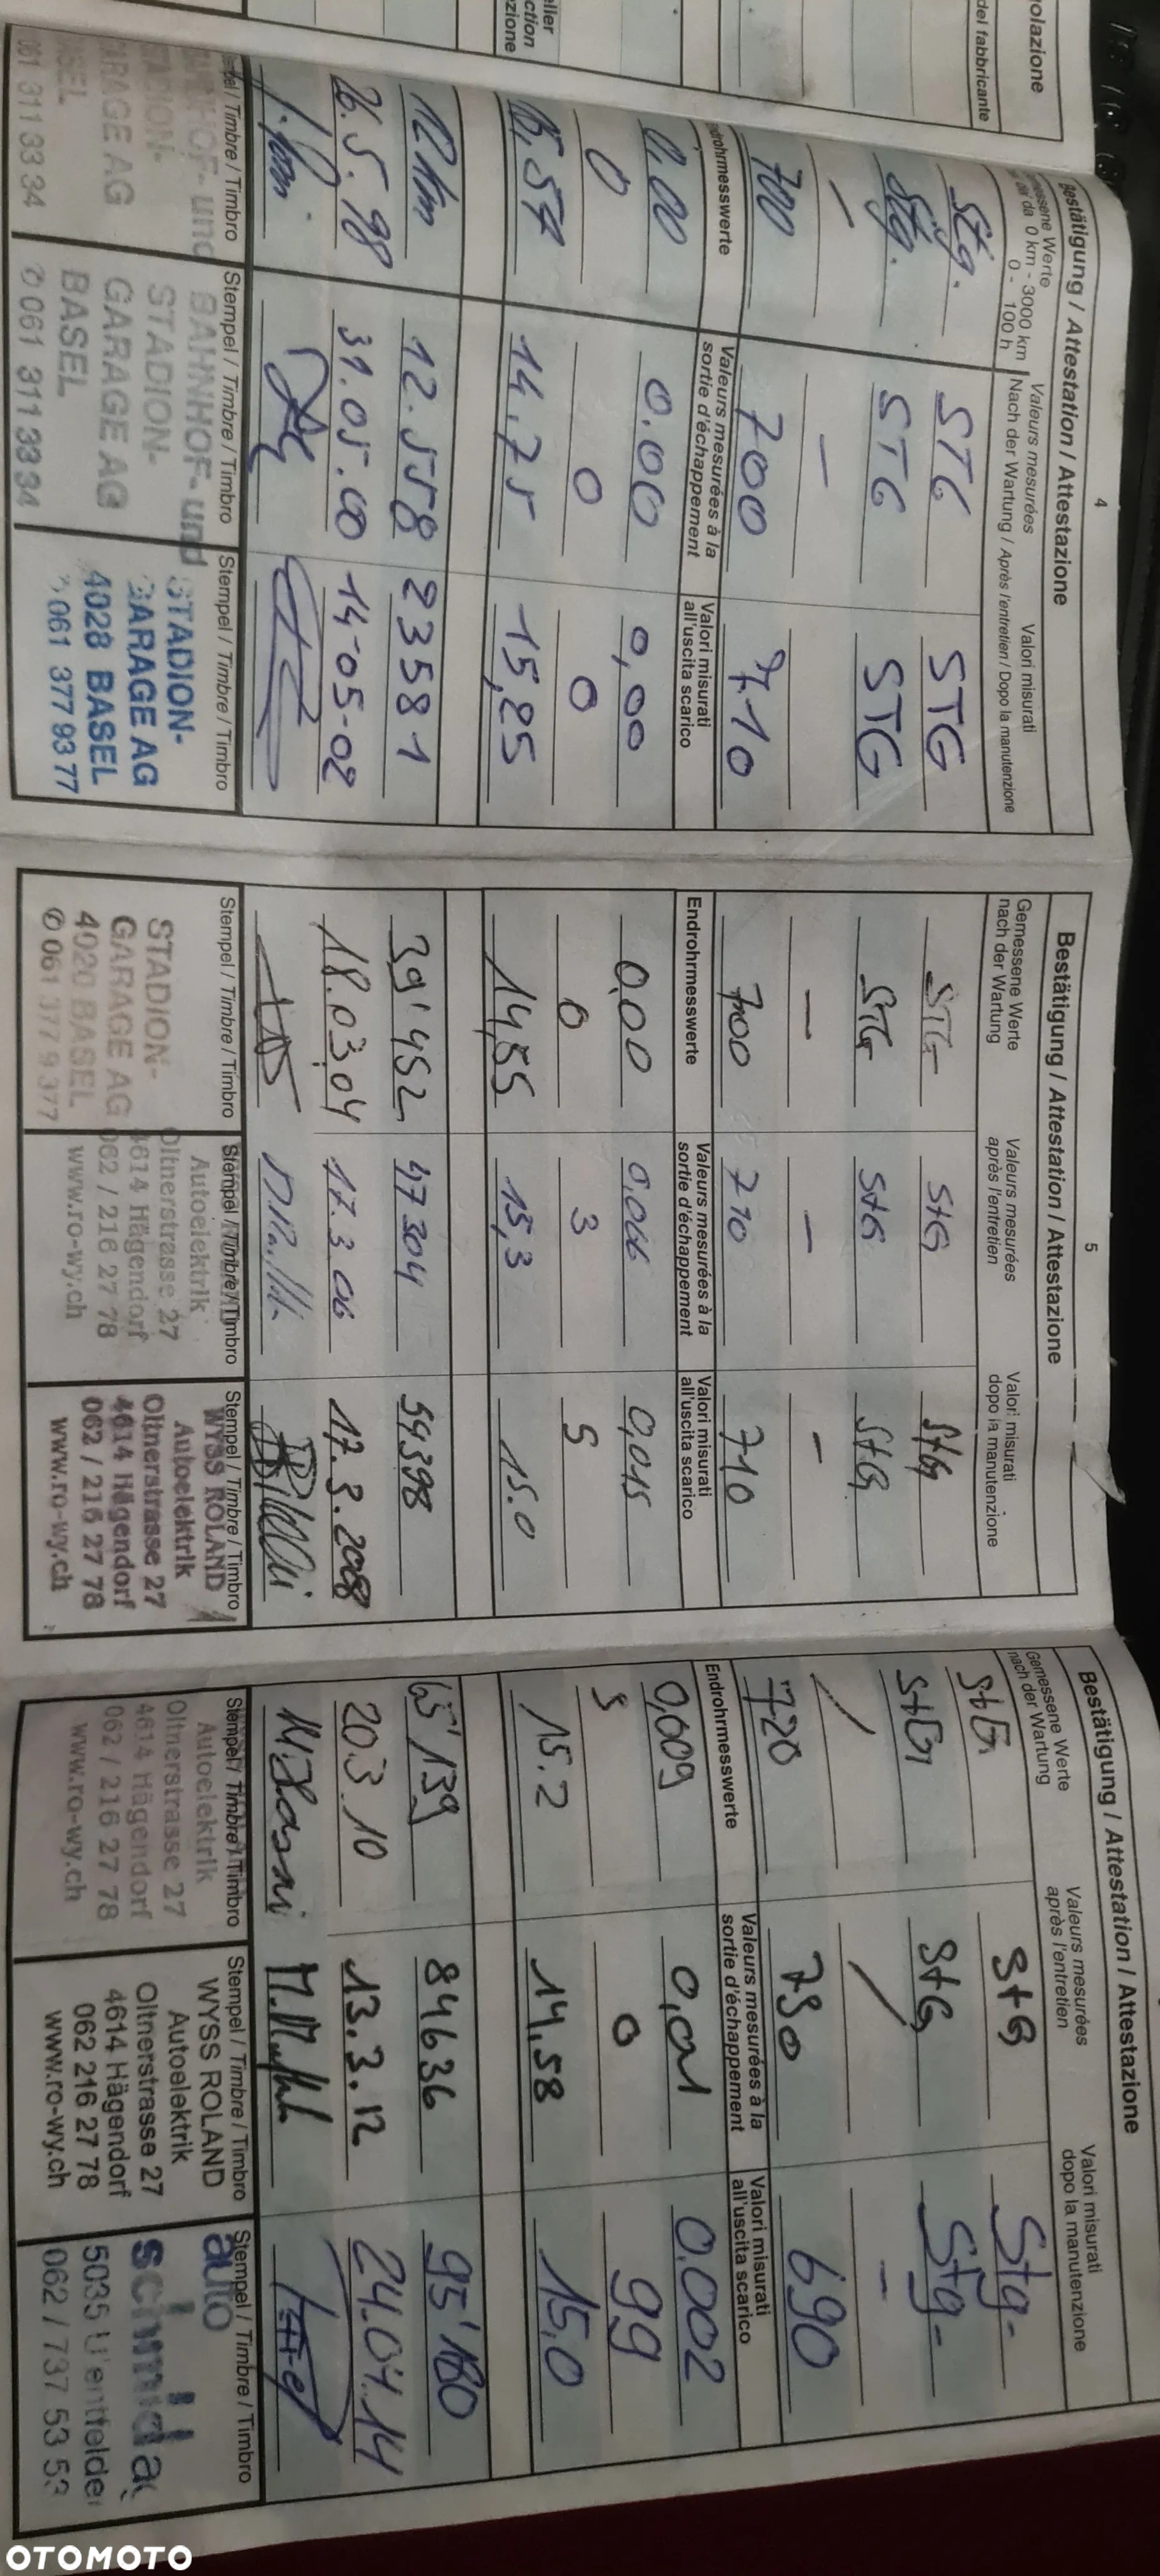 olazione
del fabbricante
eller
ction
zione
4
Bestätigung / Attestation / Attestazione
messene Werte
da 0 km - 3000 km
0 - 100 h
Valeurs mesurées
Valori misurati
Nach der Wartung / Après l'entretien / Dopo la manutenzione
Stg. STG STG
Stg. STG STG
/ — 
700 700 710
Endrohrmesswerte
Valeurs mesurées à la
sortie d'échappement
Valori misurati
all'uscita scarico
0,00 0.00 0,00
0 0 0
15,57 14,75 15,25
12 km 12.558 23581
26.5.98 31.05.00 14-05-02
Stempel / Timbre / Timbro
Stempel / Timbre / Timbro
Stempel / Timbre / Timbro
BAHNHOF- und
STADION-
GARAGE AG
BASEL
061 311 33 34
BAHNHOF- und
STADION-
GARAGE AG
BASEL
✆ 061 311 33 34
STADION-
GARAGE AG
4028 BASEL
061 377 93 77
5
Bestätigung / Attestation / Attestazione
Gemessene Werte
nach der Wartung
Valeurs mesurées
après l'entretien
Valori misurati
dopo la manutenzione
STG StG StG
STG StG StG
— — –
700 710 710
Endrohrmesswerte
Valeurs mesurées à la
sortie d'échappement
Valori misurati
all'uscita scarico
0,00 0,006 0,015
0 3 5
14,55 15,3 15.0
39'452 47304 54398
18.03.04 17.3.06 17.3.2008
Stempel / Timbre / Timbro
Stempel / Timbre / Timbro
Stempel / Timbre / Timbro
STADION-
GARAGE AG
4020 BASEL
✆ 061 377 9 377
Autoelektrik
Oltnerstrasse 27
4614 Hägendorf
062 / 216 27 78
www.ro-wy.ch
WYSS ROLAND
Autoelektrik
Oltnerstrasse 27
4614 Hägendorf
062 / 216 27 78
www.ro-wy.ch
Bestätigung / Attestation / Attestazione
Gemessene Werte
nach der Wartung
Valeurs mesurées
après l'entretien
Valori misurati
dopo la manutenzione
StG StG Stg-
StG StG Stg-
/ / –
720 730 690
Endrohrmesswerte
Valeurs mesurées à la
sortie d'échappement
Valori misurati
all'uscita scarico
0,009 0,01 0.002
5 0 99
15.2 14,58 15,0
65'139 84636 95'180
20.3.10 13.3.12 24.04.14
Stempel / Timbre / Timbro
Stempel / Timbre / Timbro
Stempel / Timbre / Timbro
Autoelektrik
Oltnerstrasse 27
4614 Hägendorf
062 / 216 27 78
www.ro-wy.ch
WYSS ROLAND
Autoelektrik
Oltnerstrasse 27
4614 Hägendorf
062 216 27 78
www.ro-wy.ch
auto
schmid
5035 U'entfelde
062 / 737 53 53
OTOMOTO